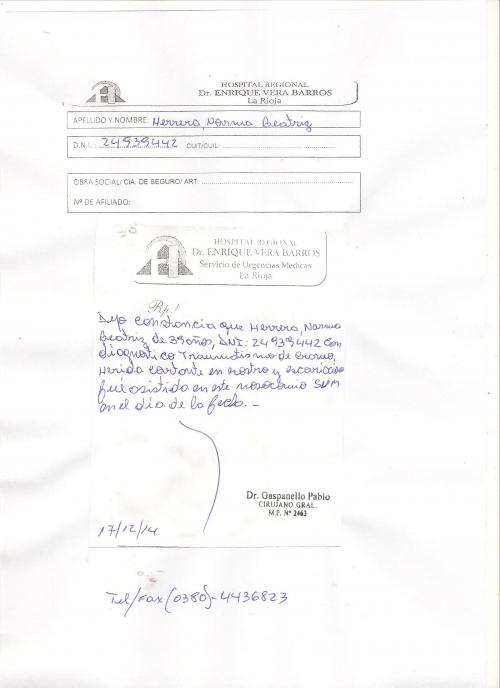 HOSPITAL REGIONAL
Dr. ENRIQUE VERA BARROS
La Rioja
APELLIDO Y NOMBRE: Herrera, Norma Beatriz
D.N.I.: 24939442 CUIT/CUIL:
OBRA SOCIAL/ CIA. DE SEGURO/ ART:
Nº DE AFILIADO:
HOSPITAL REGIONAL
Dr. ENRIQUE VERA BARROS
Servicio de Urgencias Medicas
La Rioja
Rp./
Dejo constancia que Herrera, Norma
Beatriz de 39 años, DNI: 24939442 con
diagnostico Traumatismo de craneo,
Herida cortante en rostro y
fué asistida en este nosocomio SUM
en el día de la fecha. -
Dr. Gaspanello Pablo
CIRUJANO GRAL.
M.P. Nº 2463
17/12/14
Tel/Fax (0380)-4436823